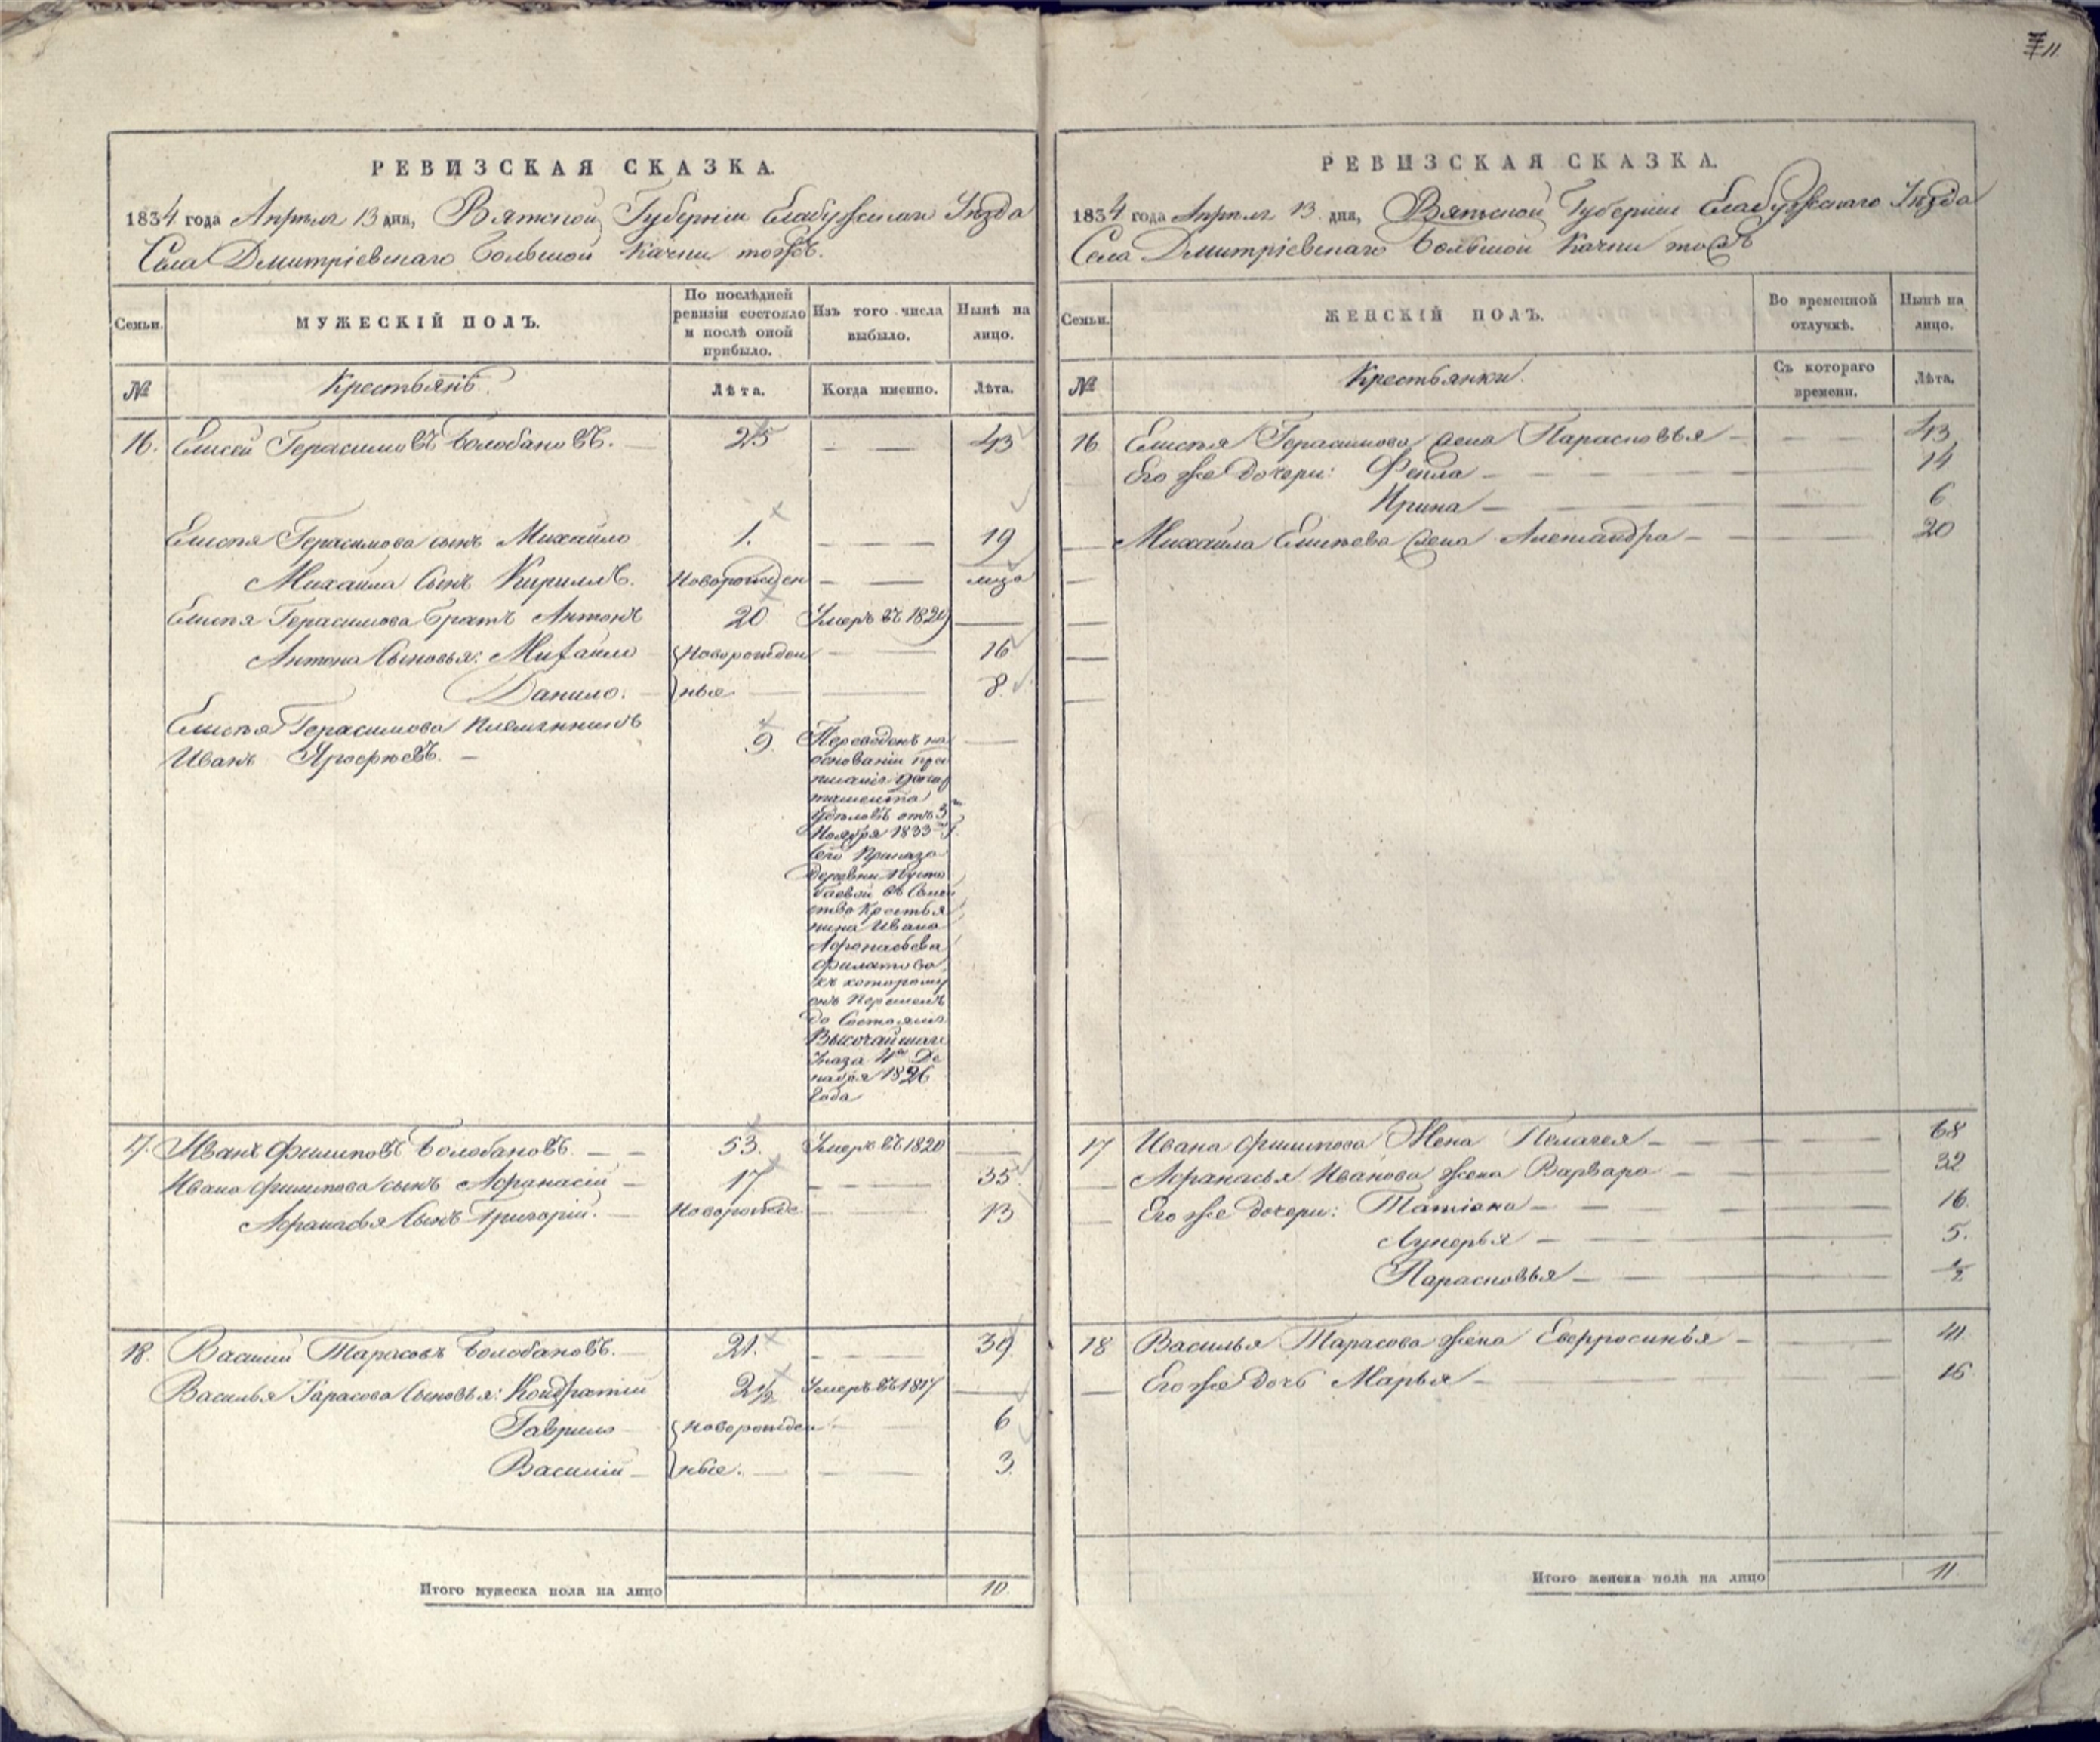 11
РЕВИЗСКАЯ СКАЗКА.
1834 года Апрѣля 13 дня, Вятской Губерніи Елабужскаго Уѣзда
Села Дмитріевскаго Большой Качки тожъ.
Семьи. МУЖЕСКІЙ ПОЛЪ. По послѣдней ревизіи состояло и послѣ оной прибыло. Изъ того числа выбыло. Нынѣ на лицо.
№ Крестьянъ. Лѣта. Когда именно. Лѣта.
16. Елисей Герасимовъ Болобановъ. 25 — — 43
Елисѣя Герасимова сынъ Михайло 1. — — 19
Михаила Сынъ Кириллъ. Новорожден — —
Елисѣя Герасимова братъ Антонъ 20 Умеръ въ 1829 —
Антона Сыновья: Михайло {Новорожден — — 16
Данило. — }ныя — — 8.
Елисѣя Герасимова племянникъ
Иванъ Ярофѣевъ. — 9. Переведенъ на —
основаніи пред
писанія Депар
тамента
Удѣловъ отъ 3
Ноября 1833
Сего Приказа
деревни
баевой въ Семей
ство Крестья
нина Ивана
Афонасьева
Филатова,
къ которому
онъ Перешелъ
до Состоянія
Высочайшаго
Указа 4го Де
кабря 1826
Года
17. Иванъ Филиповъ Болобановъ. — — 53. Умеръ въ 1820 —
Ивана Филипова сынъ Афанасій — 17. — — 35
Афанасья Сынъ Григорій. — Новорожде — — 13
18. Василій Тарасовъ Болобановъ. — 21. — — 39
Василья Тарасова Сыновья: Кондратій 2 1/2 Умеръ въ 1817 —
Гаврило — {Новорожден — 6
Василій — }ные. — — — 3
Итого мужеска пола на лицо 10.
РЕВИЗСКАЯ СКАЗКА.
1834 года Апрѣля 13 дня, Вятской Губерніи Елабужскаго Уѣзда
Села Дмитріевскаго Большой Качки тожъ
Семьи. ЖЕНСКІЙ ПОЛЪ. Во временной отлучкѣ. Нынѣ на лицо.
№ Крестьянки. Съ котораго времени. Лѣта.
16 Елисѣя Герасимова жена Парасковья — — — 43
Его же дочери: Фекла — — — 14
Ирина — — — 6
Михаила Елисѣева жена Александра — — — 20
17 Ивана Филипова Жена Пелагея — — — 68
Афанасья Иванова жена Варвара — — 32
Его же дочери: Татіана — — — 16.
Лукерья — — — 5.
Парасковья — — — 1/2
18 Василья Тарасова жена Евфросинья — — — 41.
Его же дочь Марья — — — 16
Итого женска пола на лицо 11